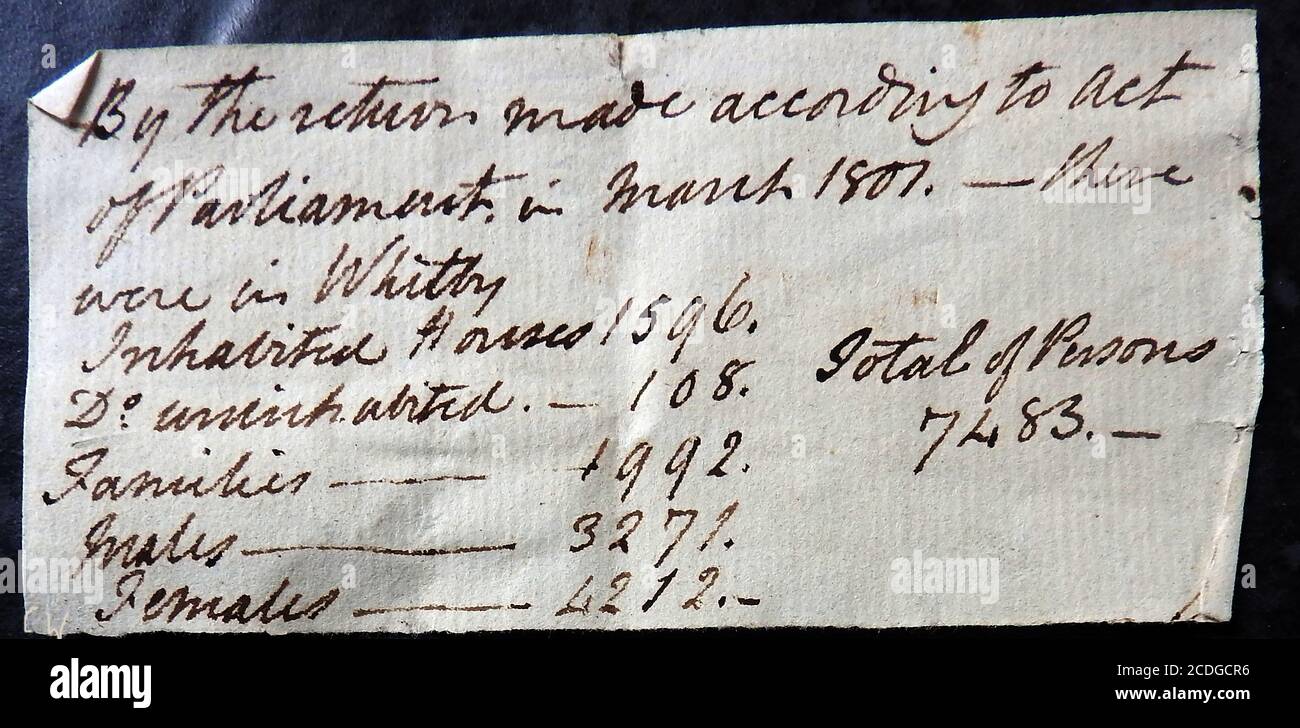 By the return made according to Act
of Parliament. in March 1801. — there
were in Whitby
Inhabited Houses 1596.
Do. uninhabited. — 108.
Families — 1992.
Males — 3271.
Females — 4212. –
Total of Persons
7483. —
alamy
Image ID: 2CDGCR6
www.alamy.com